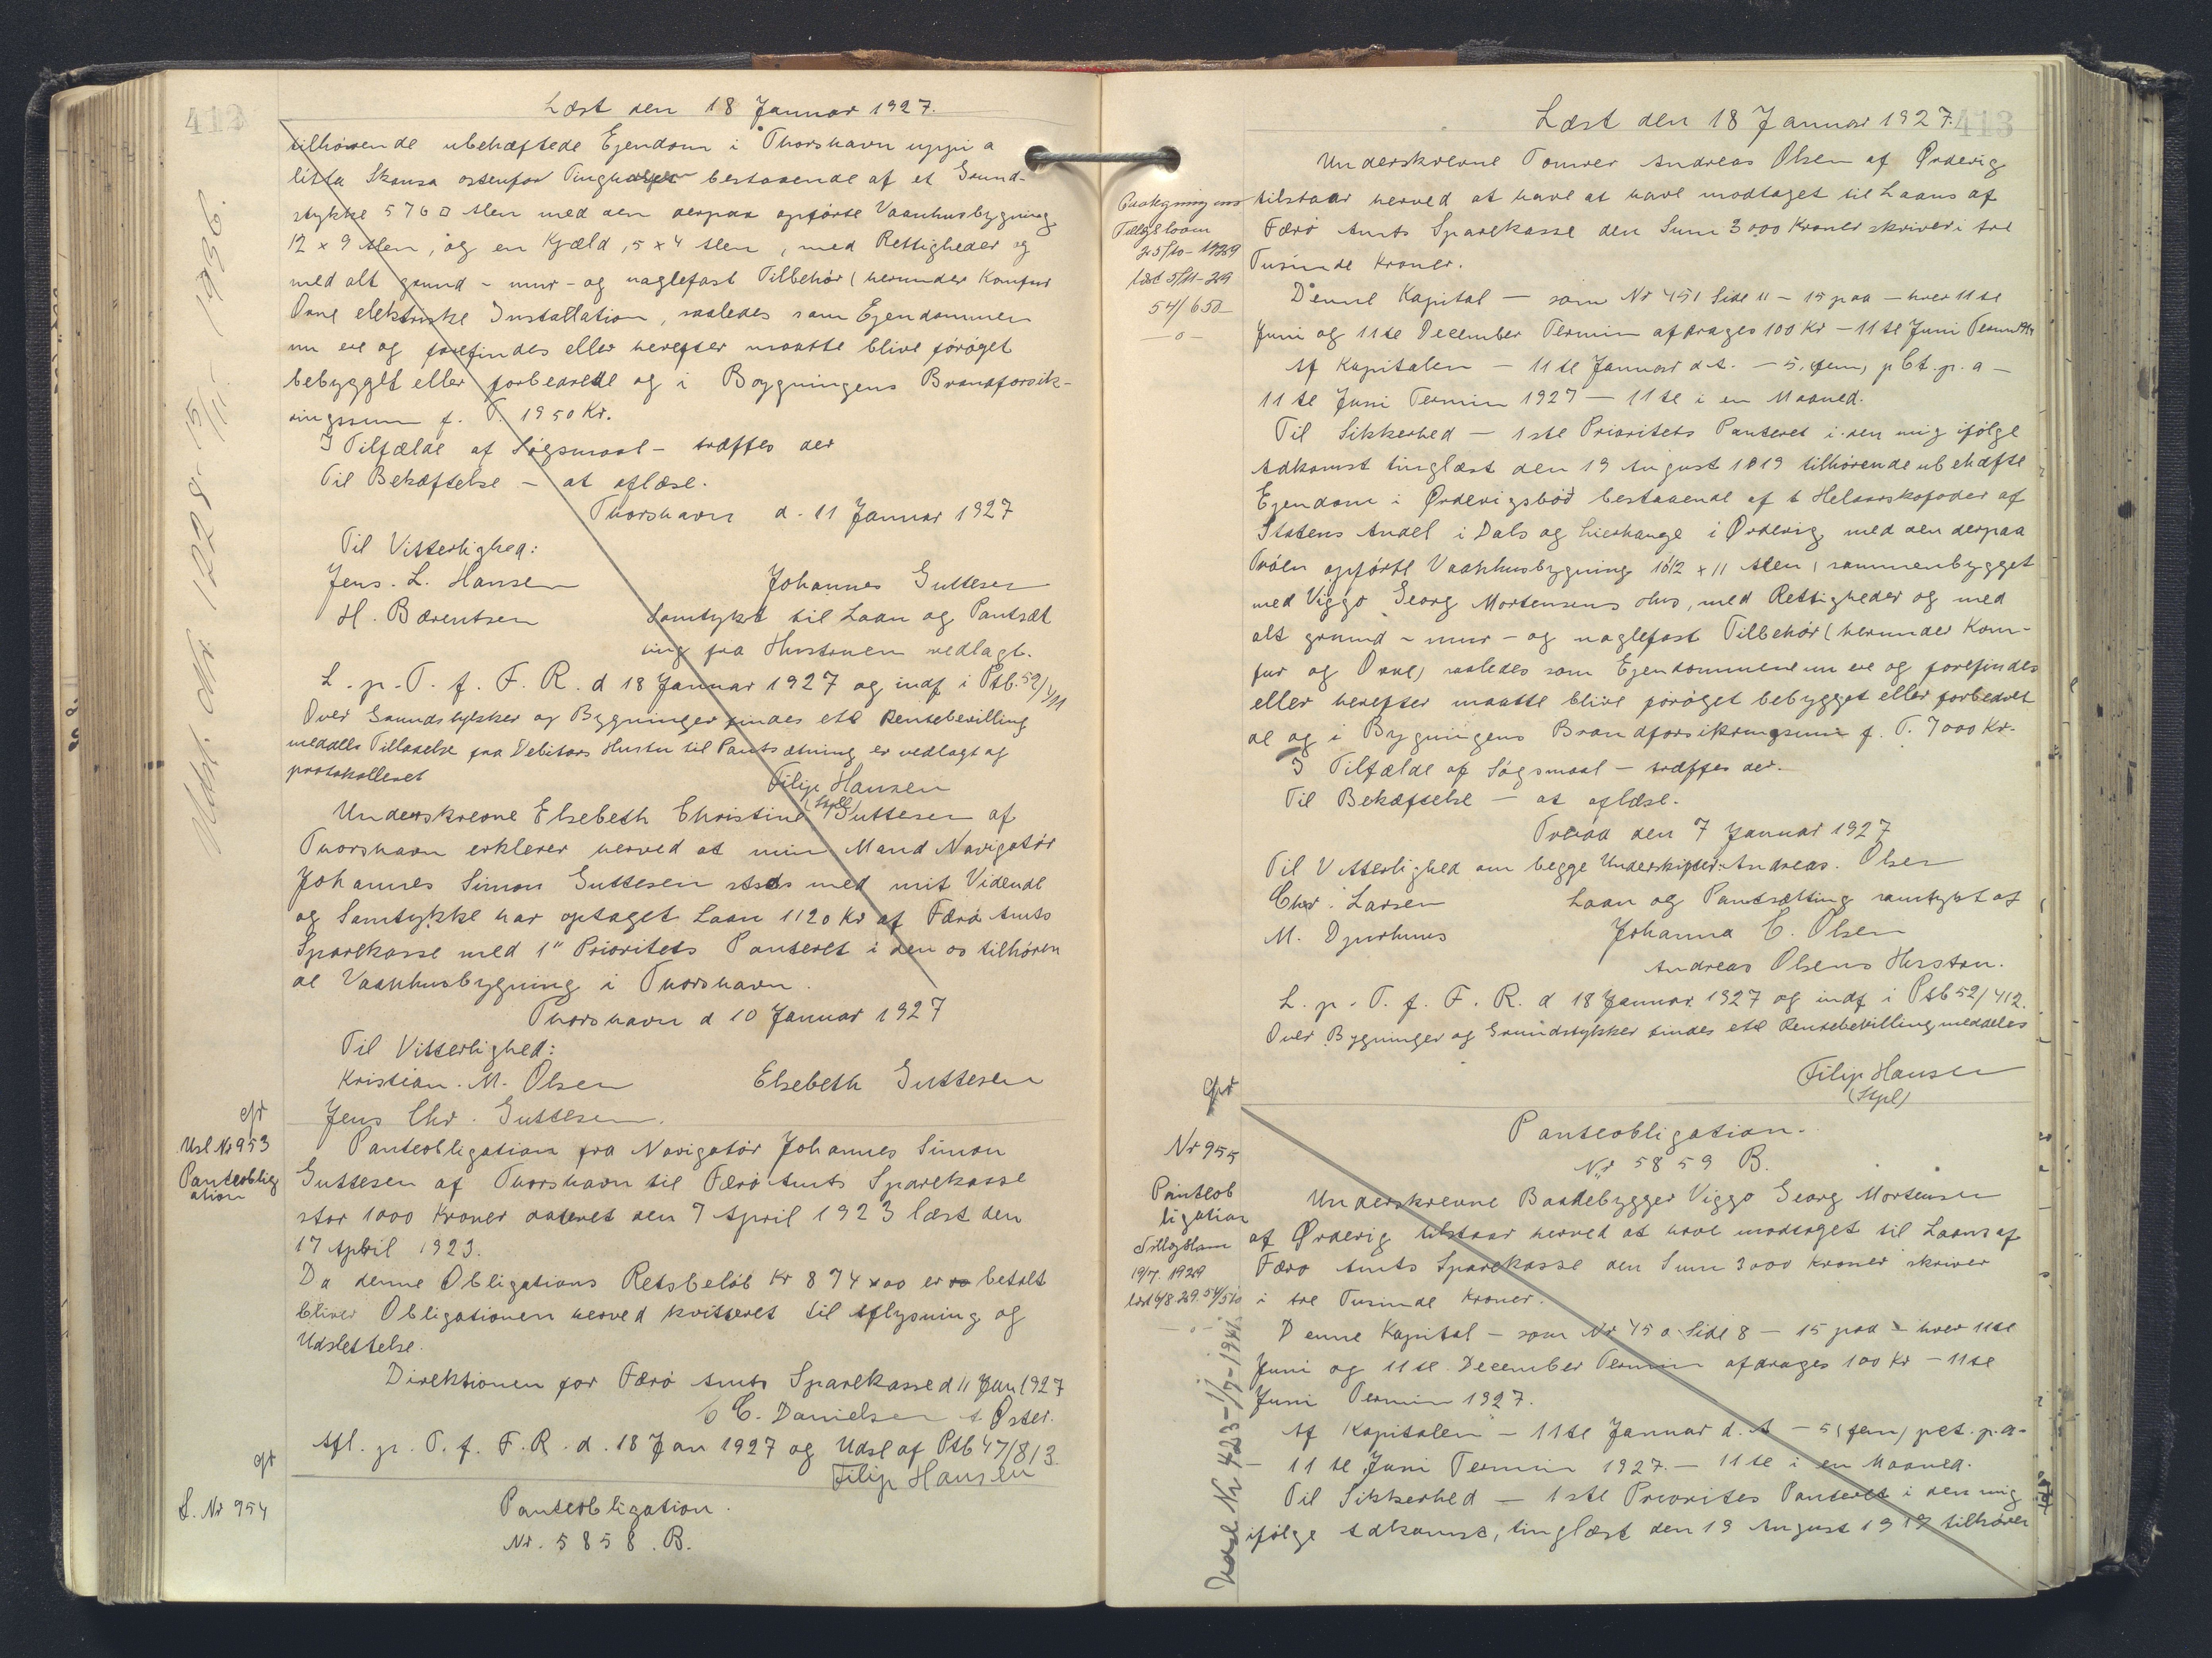 412
Læst den 18 Januar 1927.
tilhørende ubehæftede Ejendom i Thorshavn uppi a
litla Skansa ostenfor Tinghuset bestaaende af et Grund-
stykke 576 □ Alen med den derpaa opførte Vaanhusbygning
12 x 9 Alen, og en Kjæld, 5 x 4 Alen, med Rettigheder og
med alt grund - mur - og naglefast Tilbehør (herunder Komfur
Ovne elektriske Installation, saaledes som Ejendommen
nu ere og forefindes eller herefter maatte blive forøget
bebygget eller forbedrede og i Boygningens Brandforsik-
ringssum f. T. 1950 Kr.
I Tilfælde af Søgsmaal - træffes der
Til Bekæftelse - at aflæse.
Thorshavn d. 11 Januar 1927
Til Vitterlighed:
Jens. L. Hansen Johannes Guttesen
H. Bærentsen Samtykt til Laan og Pantsæt
ning fra Hustruen vedlagt.
L. p. T. f. F. R. d 18 Januar 1927 og indf i Ptb. 52/411
Over Grundstykker og Bygninger findes ell Rentebevilling
meddels Tilladelse fra Debitors Hustru til Pantsætning er vedlagt og
protokolleret
Filip Hansen
(Stpl)
Underskrevne Elsebeth Christine Guttesen af
Thorshavn erklerer herved at min Mand Navigatør
Johannes Simon Guttesen stsds med mit Vidende
og Samtykke har optaget Laan 1120 Kr af Færø Amts
Sparekasse med 1" Prioritets Panteret i den os tilhøren
de Vaanhusbygning i Thorshavn.
Thorshavn d 10 Januar 1927
Til Vitterlighed:
Kristian. M. Olsen Elsebeth Guttesen
Jens Chr. Guttesen.
Udsl. Nr 1228 - 15/11 - 1936.
Usl Nr 953
Panteoblig
ation
Panteobligation fra Navigatør Johannes Simon
Guttesen af Thorshavn til Færø Amts Sparekasse
stor 1000 Kroner dateret den 7 April 1923 læst den
17 April 1923.
Da denne Obligations Retsbeløb Kr 874 x 00 er betalt
bliver Obligationen herved kvitteret til Aflysning og
Udslettelse.
Direktionen for Færø Amts Sparekasse d 11 Jan 1927
C C. Danielsen A Øster.
Afl. p. T. f. F. R. d. 18 Jan 1927 og Udsl af Ptb 47/813.
Filip Hansen
L. Nr 954
Panteobligation.
Nr. 5858. B.
413
Læst den 18 Januar 1927.
Underskrevne Tømrer Andreas Olsen af Ørderig
tilstaar herved at have at have modtaget til Laans af
Færø Amts Sparekasse den Sum 3000 Kroner skriver i tre
Tusinde Kroner.
Paategning om
Tillægsloøm
25/10 - 1929
læst 5/11 - 29
54/650
— o —
Denne Kapital — som Nr 451 Side 11 - 15 paa — hver 11te
Juni og 11te December Termin afdrages 100 Kr — 11te Juni Termin 1927
Af Kapitalen — 11te Januar d. A. — 5, fem, p Ct. p. a —
11te Juni Termin 1927 — 11te i en Maaned.
Til Sikkerhed — 1ste Prioritets Panteret i den mig ifølge
Adkomst tinglæst den 19 August 1919 tilhørende ubehæfte
Ejendom i Ørderigsbød bestaaende af 6 Helaarskofoder af
Statens Andel i Dals og Lierhauge i Ørderig med den derpaa
opførte Vaanhusbygning 16 1/2 x 11 Alen, sammenbygget
med Viggo Georg Mortensens Hus, med Rettigheder og med
alt grund - mur - og naglefast Tilbehør (herunder Kom-
fur og Ovne) saaledes som Ejendommene nu ere og forefindes
eller herefter maatte blive forøget bebygget eller forbedret
de og i Bygningens Brandforsikringsum f. T. 7000 Kr.
I Tilfælde af Søgsmaal — træffes der.
Til Bekæftelse — at aflæse.
Tveraa den 7 Januar 1927
Til Vitterlighed om begge Underskrifter: Andreas. Olsen
Chr. Larsen Laan og Pantsætting samtykt af
M. Djurhuus Johanna C. Olsen
Andreas Olsens Hustru.
L. p. T. f. F. R. d 18 Januar 1927 og indf i Ptb 52/412.
Over Bygninger og Grundstykker findes ell Rentebevilling meddeles
Filip Hansen
(Stpl)
Nr 955
Panteob
ligation
Tillægsloøm
19/7. 1929
læst 6/8 29. 54/510
— o —
Panteobligation.
Nr 5859 B.
Underskrevne Baadebygger Viggo Georg Mortensen
af Ørderig tilstaar herved at have modtaget til Laans af
Færø Amts Sparekasse den Sum 3000 Kroner skriver
i tre Tusinde Kroner.
Denne Kapital — som Nr 450 Side 8 — 15 paa — hver 11te
Juni og 11te December Termin afdrages 100 Kr — 11te
Juni Termin 1927.
Af Kapitalen — 11te Januar d. A — 5 (fem) pct. p. a —
— 11te Juni Termin 1927 — 11te i en Maaned.
Til Sikkerhed — 1ste Prioritets Panteret i den mig
ifølge Adkomst, tinglæst den 19 August 1919 tilhøren
Udsl Nr 423 - 1/7 - 1941.